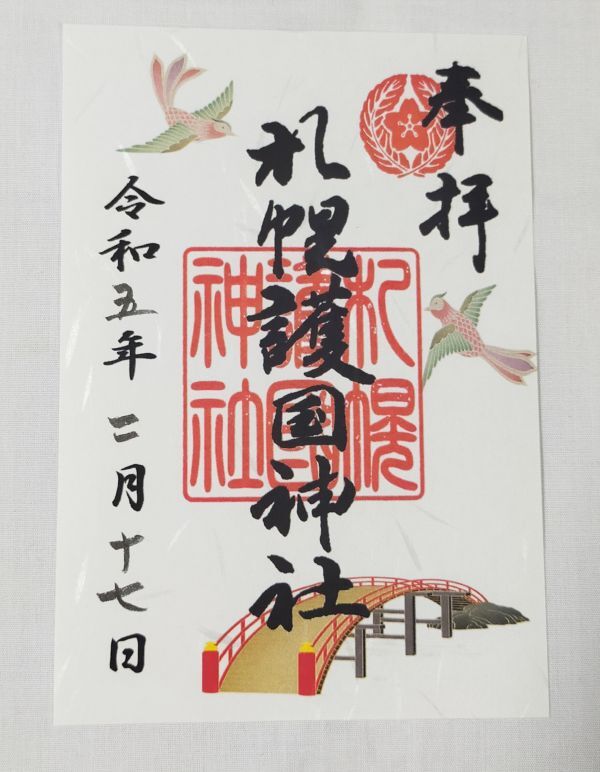 奉拝
札幌護国神社
札幌護國神社
令和五年二月十七日